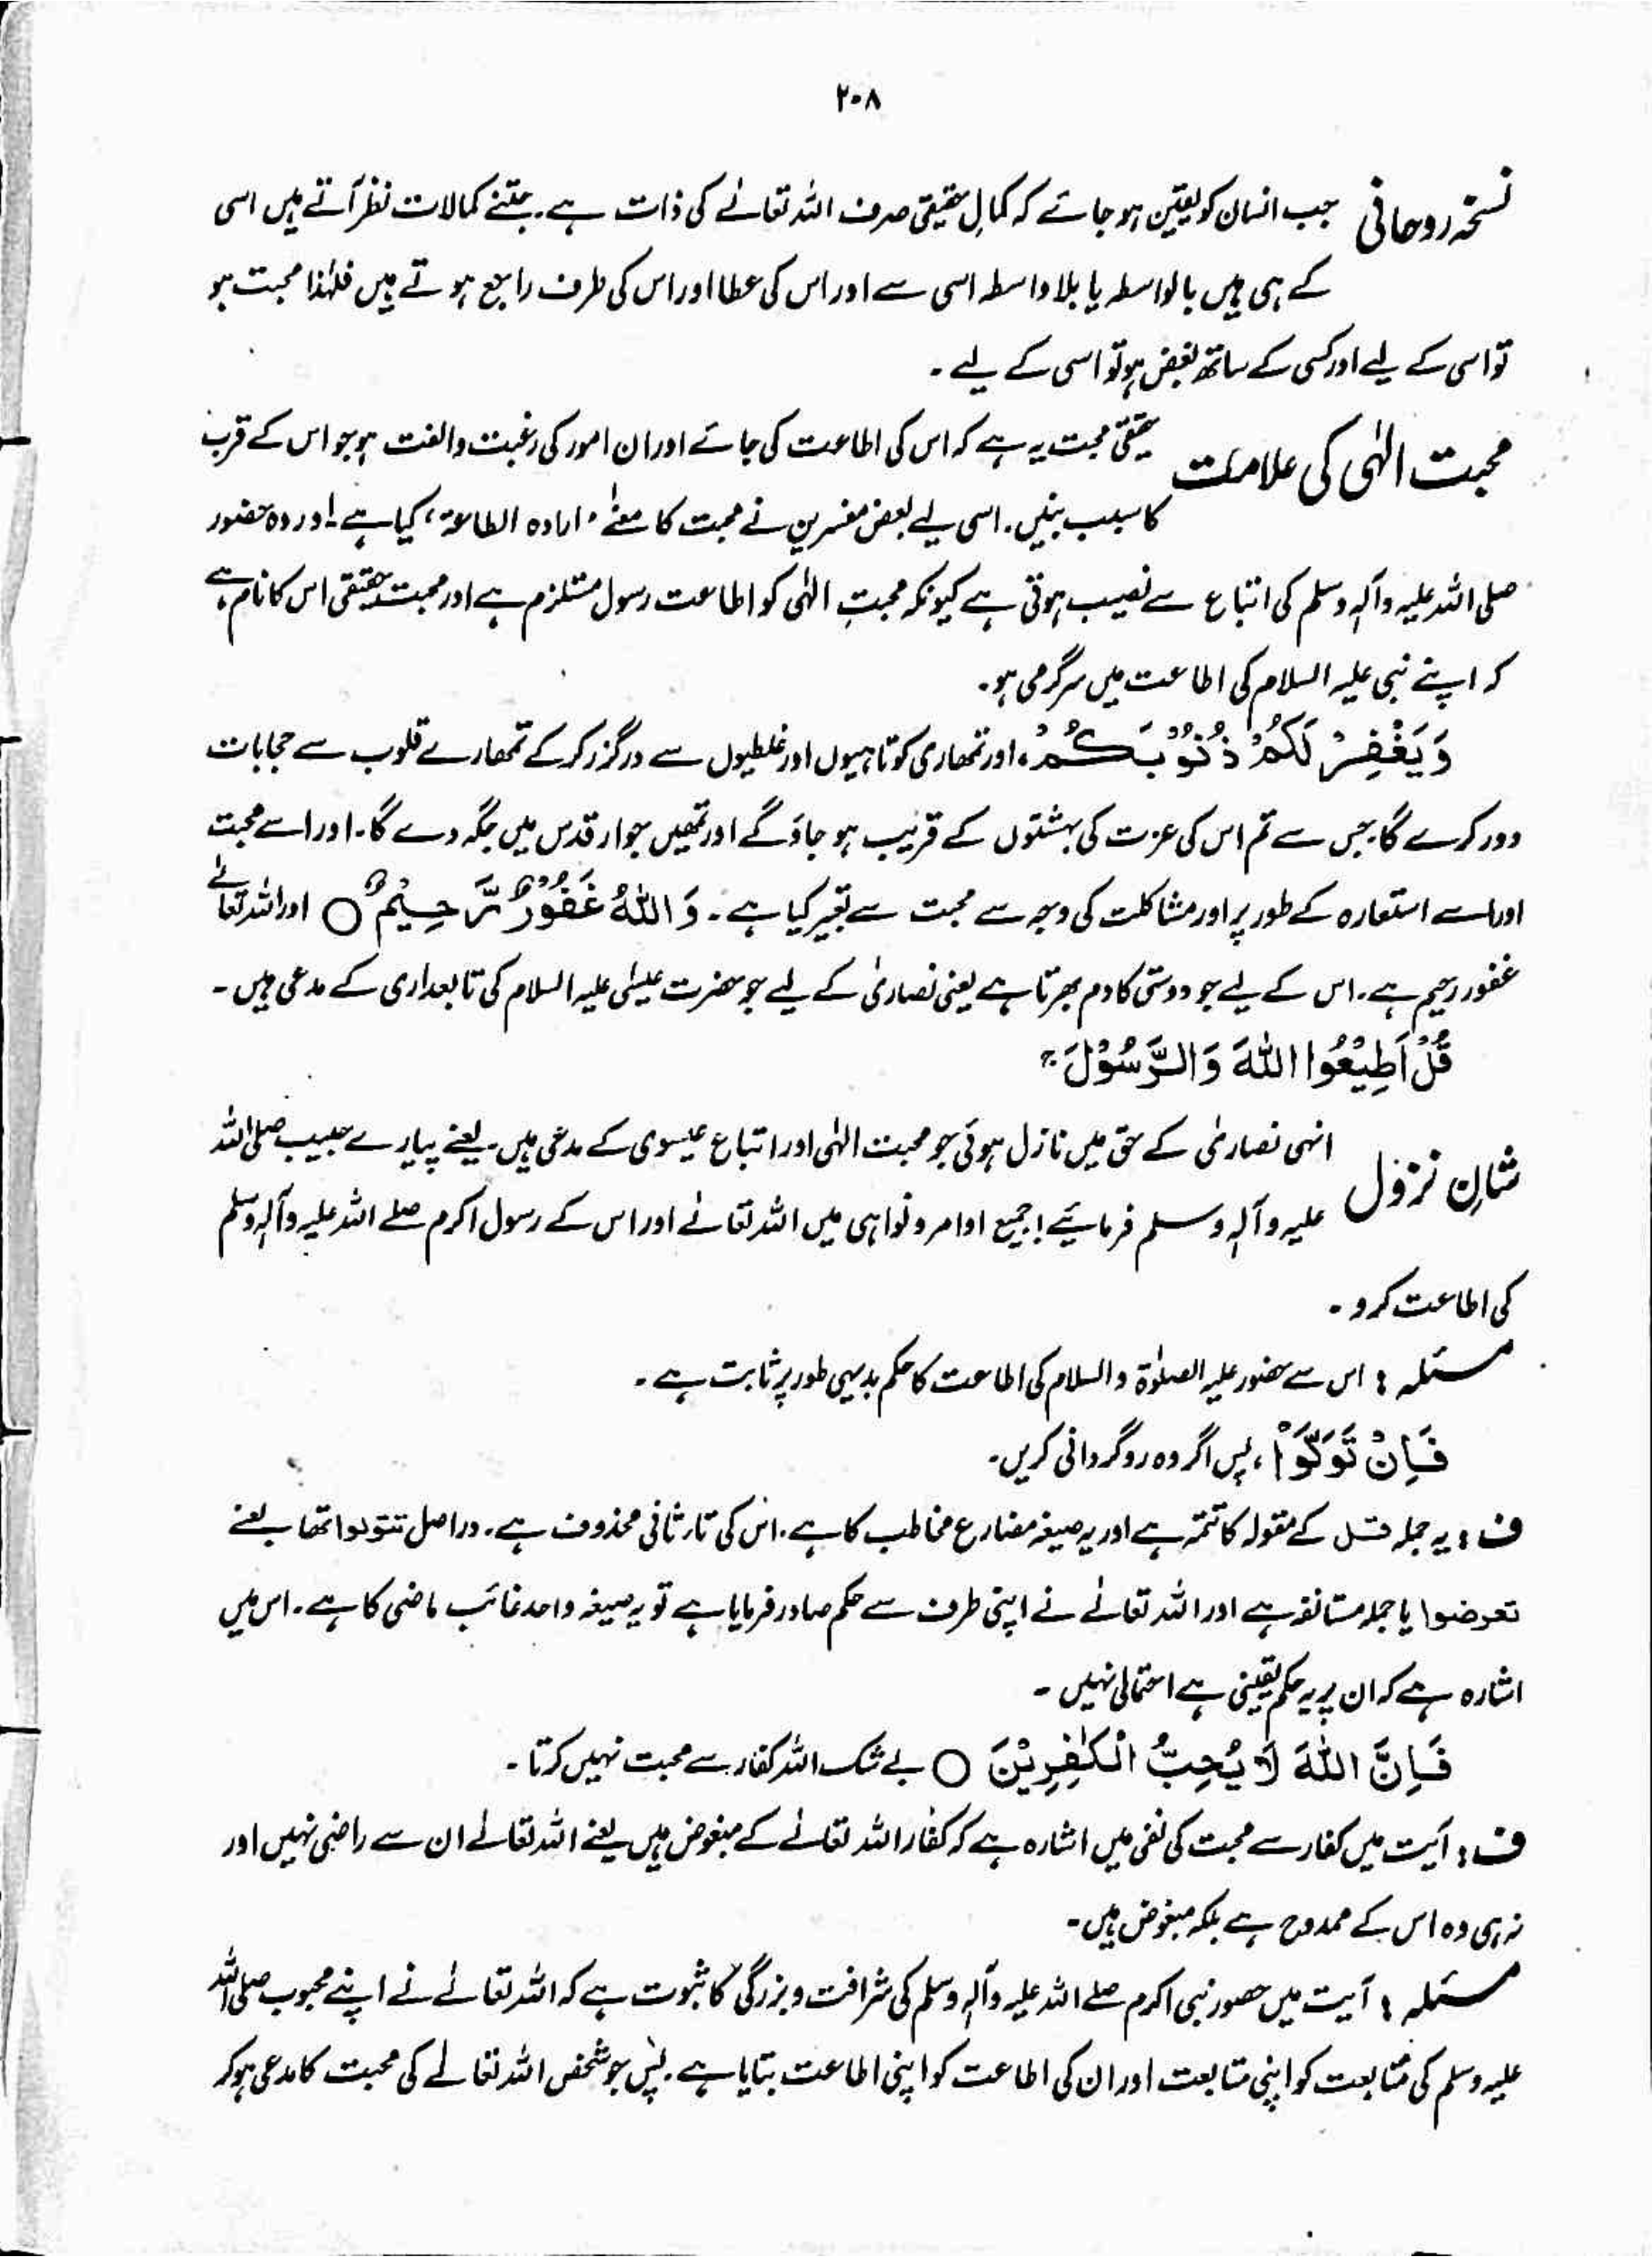 ۲۰۸
نسخہ روحانی جب انسان کو یقین ہو جائے کہ کمالِ حقیقی صرف اللہ تعالےٰ کی ذات ہے۔ جتنے کمالات نظر آتے ہیں اسی
کے ہی ہیں بالواسطہ یا بلا واسطہ اسی سے اور اس کی عطا اور اس کی طرف راجع ہوتے ہیں فلہٰذا محبت ہو
تو اسی کے لیے اور کسی کے ساتھ بغض ہو تو اسی کے لیے۔
محبت الہٰی کی علامت حقیقی محبت یہ ہے کہ اس کی اطاعت کی جائے اور ان امور کی رغبت و الفت ہو جو اس کے قرب
کا سبب بنیں۔ اسی لیے بعض مفسرین نے محبت کا معنےٰ ’ارادہ الطاعۃ‘ کیا ہے۔ اور وہ حضور
صلی اللہ علیہ وآلہٖ وسلم کی اتباع سے نصیب ہوتی ہے کیونکہ محبتِ الہٰی کو اطاعت رسول مستلزم ہے اور محبت حقیقی اس کا نام ہے
کہ اپنے نبی علیہ السلام کی اطاعت میں سرگرمی ہو۔
وَيَغْفِرْ لَكُمْ ذُنُوْبَكُمْ، اور تمھاری کوتاہیوں اور غلطیوں سے درگزر کرکے تمھارے قلوب سے حجابات
دور کرے گا، جس سے تم اس کی عزت کی بہشتوں کے قریب ہو جاؤ گے اور تمھیں جوار قدس میں جگہ دے گا۔ اور اسے محبت
اور اسے استعارہ کے طور پر اور مشاکلت کی وجہ سے محبت سے تعبیر کیا ہے۔ وَاللّٰهُ غَفُوْرٌ رَّحِيْمٌ ○ اور اللہ تعالےٰ
غفور رحیم ہے۔ اس کے لیے جو دوستی کا دم بھرتا ہے یعنی نصاریٰ کے لیے جو حضرت عیسٰی علیہ السلام کی تابعداری کے مدعی ہیں۔
قُلْ اَطِيْعُوا اللّٰهَ وَالرَّسُوْلَ ۚ
شانِ نزول انہی نصاریٰ کے حق میں نازل ہوئی جو محبت الہٰی اور اتباع عیسوی کے مدعی ہیں۔ یعنے پیارے حبیب صلی اللہ
علیہ وآلہٖ وسلم فرمائیے! جمیع اوامر و نواہی میں اللہ تعالےٰ اور اس کے رسول اکرم صلے اللہ علیہ وآلہٖ وسلم
کی اطاعت کرو۔
مسئلہ : اس سے حضور علیہ الصلوٰۃ والسلام کی اطاعت کا حکم بدیہی طور پر ثابت ہے۔
فَاِنْ تَوَلَّوْا ، پس اگر وہ روگردانی کریں۔
ف : یہ جملہ قل کے مقولہ کا تتمہ ہے اور یہ صیغہ مضارع مخاطب کا ہے۔ اس کی تار ثانی محذوف ہے۔ دراصل تتولوا تھا بعنے
تعرضوا یا جملہ مستانفہ ہے اور اللہ تعالےٰ نے اپنی طرف سے حکم صادر فرمایا ہے تو یہ صیغہ واحد غائب ماضی کا ہے۔ اس میں
اشارہ ہے کہ ان پر یہ حکم یقینی ہے احتمالی نہیں۔
فَاِنَّ اللّٰهَ لَا يُحِبُّ الْكٰفِرِيْنَ ○ بے شک اللہ کفار سے محبت نہیں کرتا۔
ف : آیت میں کفار سے محبت کی نفی میں اشارہ ہے کہ کفار اللہ تعالےٰ کے مبغوض ہیں یعنے اللہ تعالےٰ ان سے راضی نہیں اور
نہ ہی وہ اس کے ممدوح ہے بلکہ مبغوض ہیں۔
مسئلہ : آیت میں حضور نبی اکرم صلے اللہ علیہ وآلہٖ وسلم کی شرافت و بزرگی کا ثبوت ہے کہ اللہ تعالےٰ نے اپنے محبوب صلی اللہ
علیہ وسلم کی متابعت کو اپنی متابعت اور ان کی اطاعت کو اپنی اطاعت بتایا ہے۔ پس جو شخص اللہ تعالےٰ کی محبت کا مدعی ہو کر